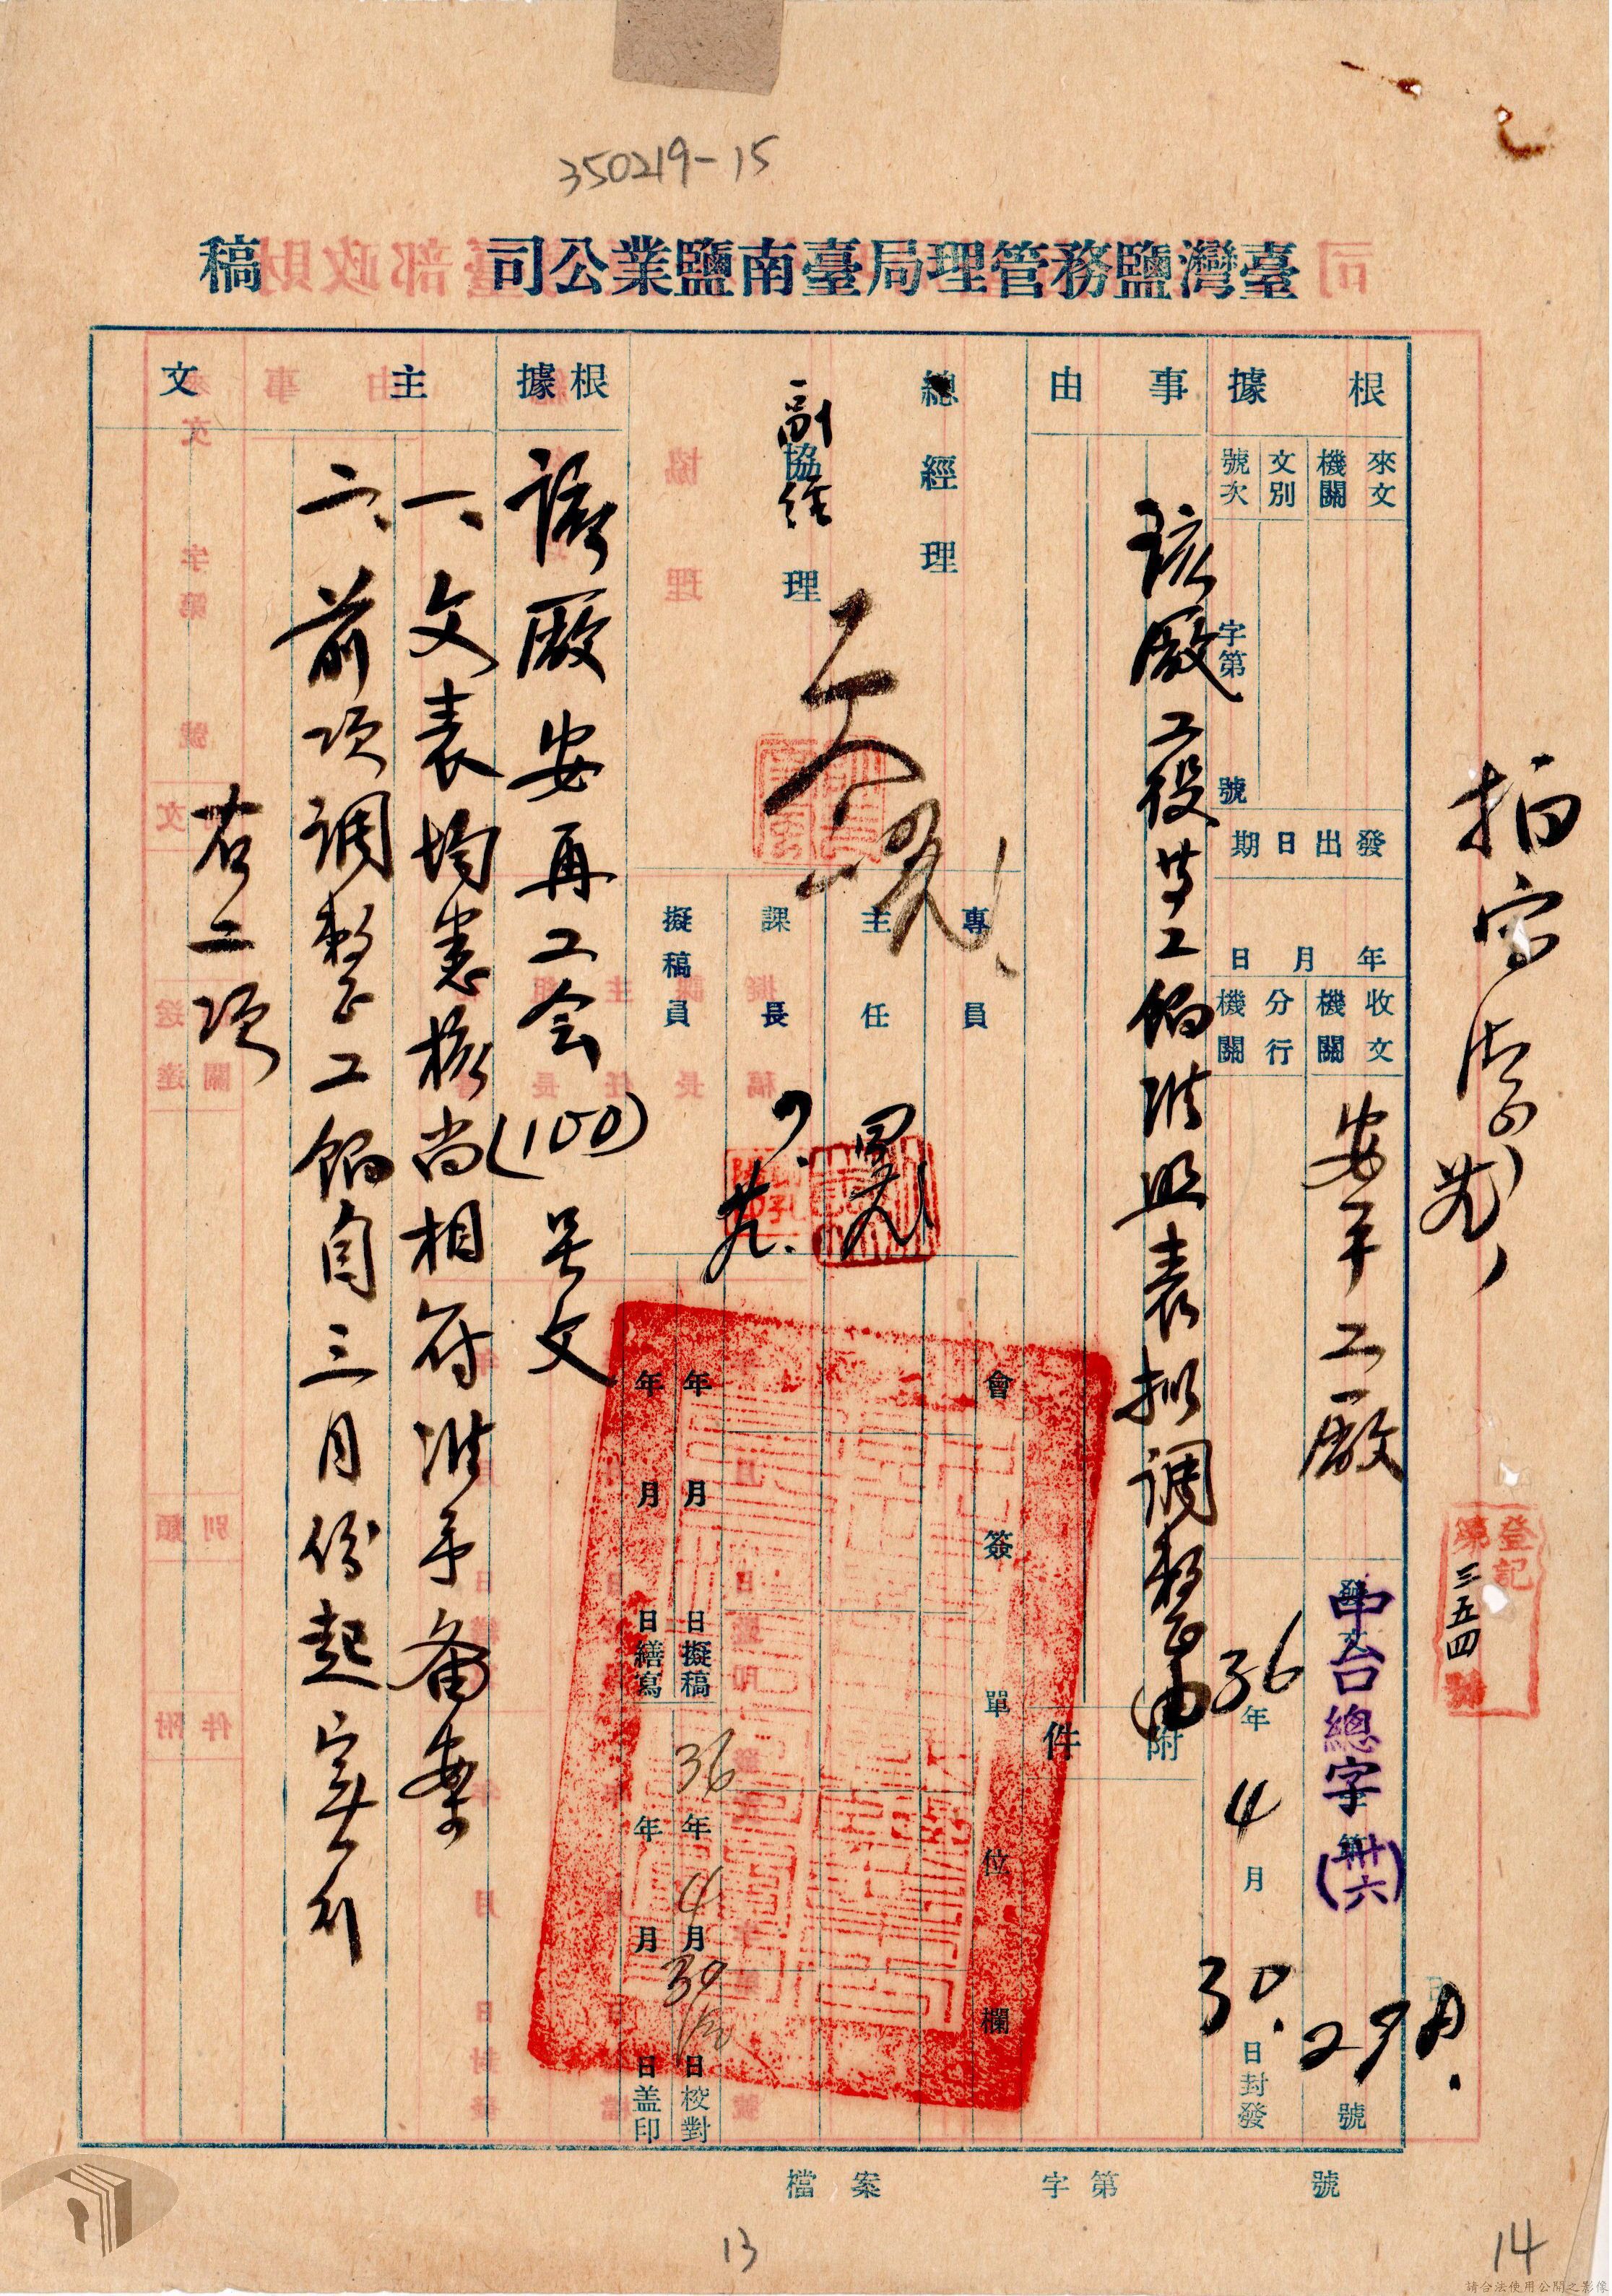 350219-15
臺灣鹽務管理局臺南鹽業公司 稿
根據
來文機關
文別
號次
字第 號
發出日期
年 月 日
收文機關
安平工廠
分行機關
中台總字(卅六)
號
36年4月30日封發
事由
該廠工役等工餉准照表拟調整由
附件
總經理
副協理
經
專員
主任
課長
擬稿員
會簽單位欄
年 月 日擬稿
年 月 日繕寫
36年4月30日校對
年 月 日盖印
根據
該廠安再工会(100)号文
主文
一、文表均悉核尚相符准予备案
二、前項調整工餉自三月份起实行
右二項
登記第三五四號
檔案 字第 號
13
14
請合法使用公開之影像